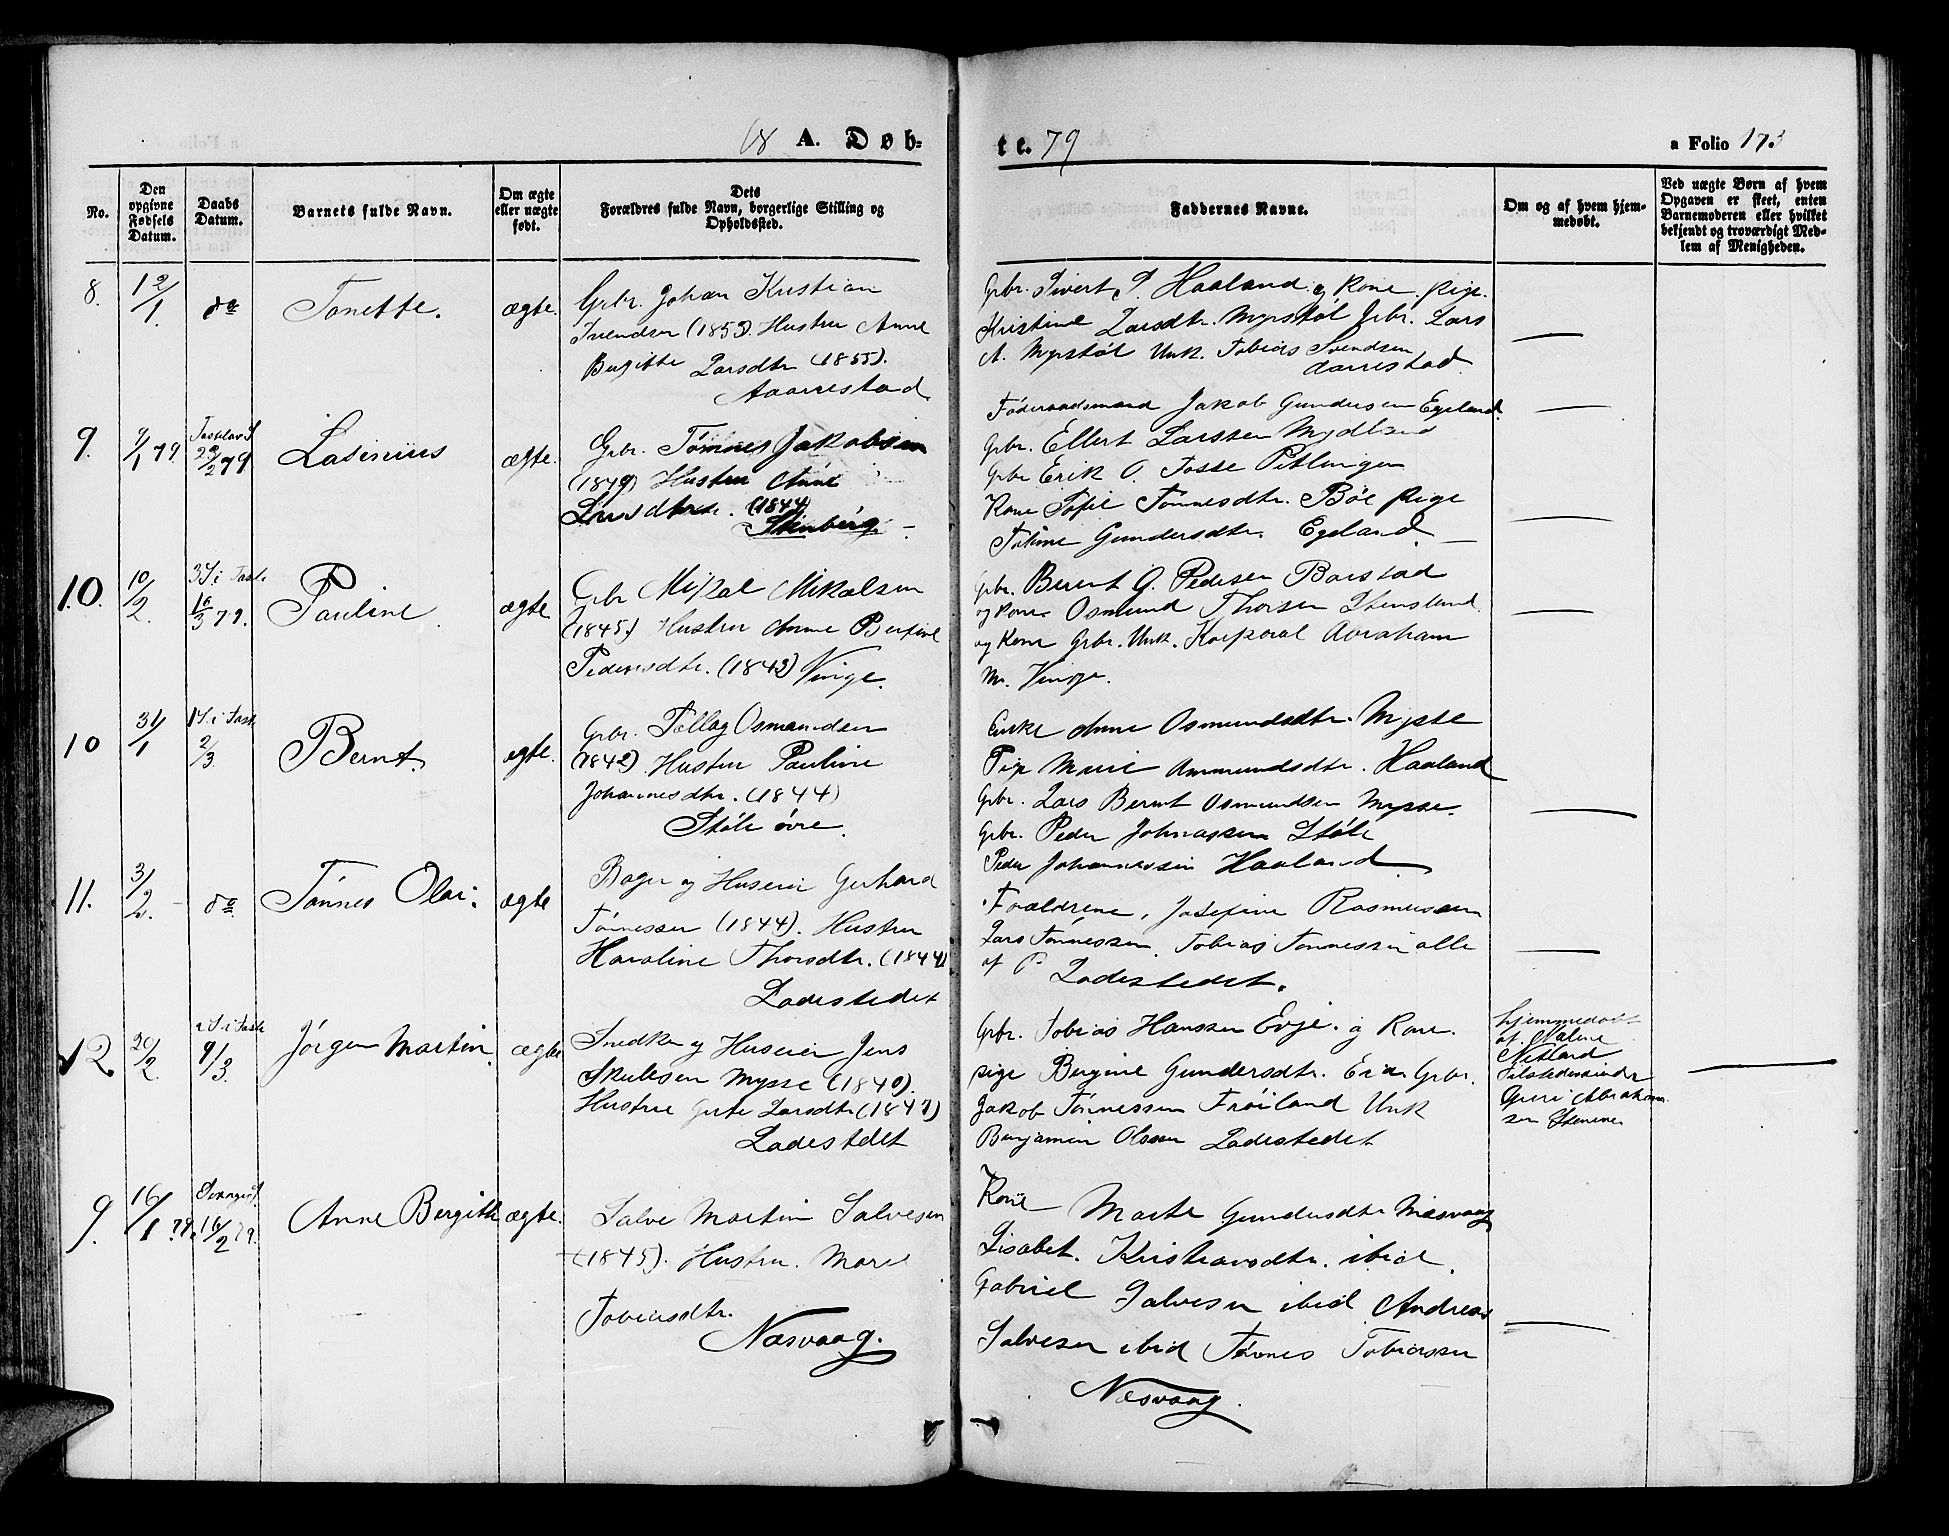 18 A. Døb-
te. 79
a Folio 173
No.
Den opgivne Fødsels Datum.
Daabs Datum.
Barnets fulde Navn.
Om ægte eller uægte født.
Dets Forældres fulde Navn, borgerlige Stilling og Opholdssted.
Faddernes Navne.
Om og af hvem hjemmedøbt.
Ved uægte Børn af hvem Opgaven er skeet, enten Barnemoderen eller hvilket bekjendt og troværdigt Medlem af Menigheden.
8.
12/1.
do
Tonette.
ægte.
Grbr. Johan Kristian
Svendsen (1853). Hustru Anne
Bergitte Larsdtr (1855).
Aarrestad
Grbr. Sivert P. Haaland og Kone. Pige.
Kristine Larsdtr. Myrstøl Grbr. Lars
A. Myrstøl Unk. Tobias Svendsen
Aarrestad.
9.
9/1 79
23/2 79
ægte.
Grbr. Tønnes Jakobsen
(1849) Hustru Anne
(1844)
Stenberg.
Føderaadsmand Jakob Gundersen Egeland.
Grbr. Ellert Larssen Mydland
Grbr Erik O. Tosse
Kone Sofie Tønnesdtr. Bøe Pige
Gundersdtr. Egeland.
10.
10/2.
3 S. i Fast.
16/3 79.
Pauline
ægte
Grbr Mikal Mikalsen
(1845.) Hustru Anne
Pedersdtr. (1842) Vinge.
Grbr. Berent G. Pedersen Barstad
og Kone Osmund Thorsen Stensland
og Kone Grbr. Unk. Korporal Abraham
M. Vinje.
10
31/1
1 S. i Fast.
2/3.
Bernt.
ægte.
Grbr. Tollag Osmundsen
(1842) Hustru Pauline
Johannesdtr. (1844)
Støle øvre.
Enke Anne Osmundsdtr. Mysse
Pige Marie Ammundsdtr. Haaland
Grbr. Lars Bernt Osmundsen Mysse.
Grbr. Peder Johnassen Støle
Peder Johannessen Haaland
11.
3/2.
do
Tønnes Olai.
ægte
Bager og Huseier Gerhard
Tønnessen (1844). Hustru
Karoline Thorsdtr. (1844)
Ladestedet
Forældrene, Josefine Rasmussen
Lars Tønnessen, Tobias Tønnessen alle
af
Ladestedet.
12.
20/2
2 S. i Fast.
9/3.
Jørgen Martin.
ægte
Snedker og Huseier Jens
Skulesen Mysse (1840).
Hustru Larsdtr (1847)
Ladestedet
Grbr. Tobias Hanssen Evje. og Kone.
Pige Bergine Gundersdtr. Eide. Grbr.
Jakob Tønnessen Frøiland Unk
Benjamin Olssen Ladestedet
hjemmedøbt
af Maline
Netland
Guri Abraham-
sen
9.
16/1.79.
16/2 79.
Anne Bergitte
ægte.
Salve Martin Salvesen
(1845). Hustru. Marie
Tobiasdtr.
Næsvaag.
Kone Marte Gundersdtr Næsvaag
Lisabet. Kristiansdtr. ibid.
Gabriel Salvesen ibid Andreas
Salvesen ibid Tønnes Tobiassen
Næsvaag.